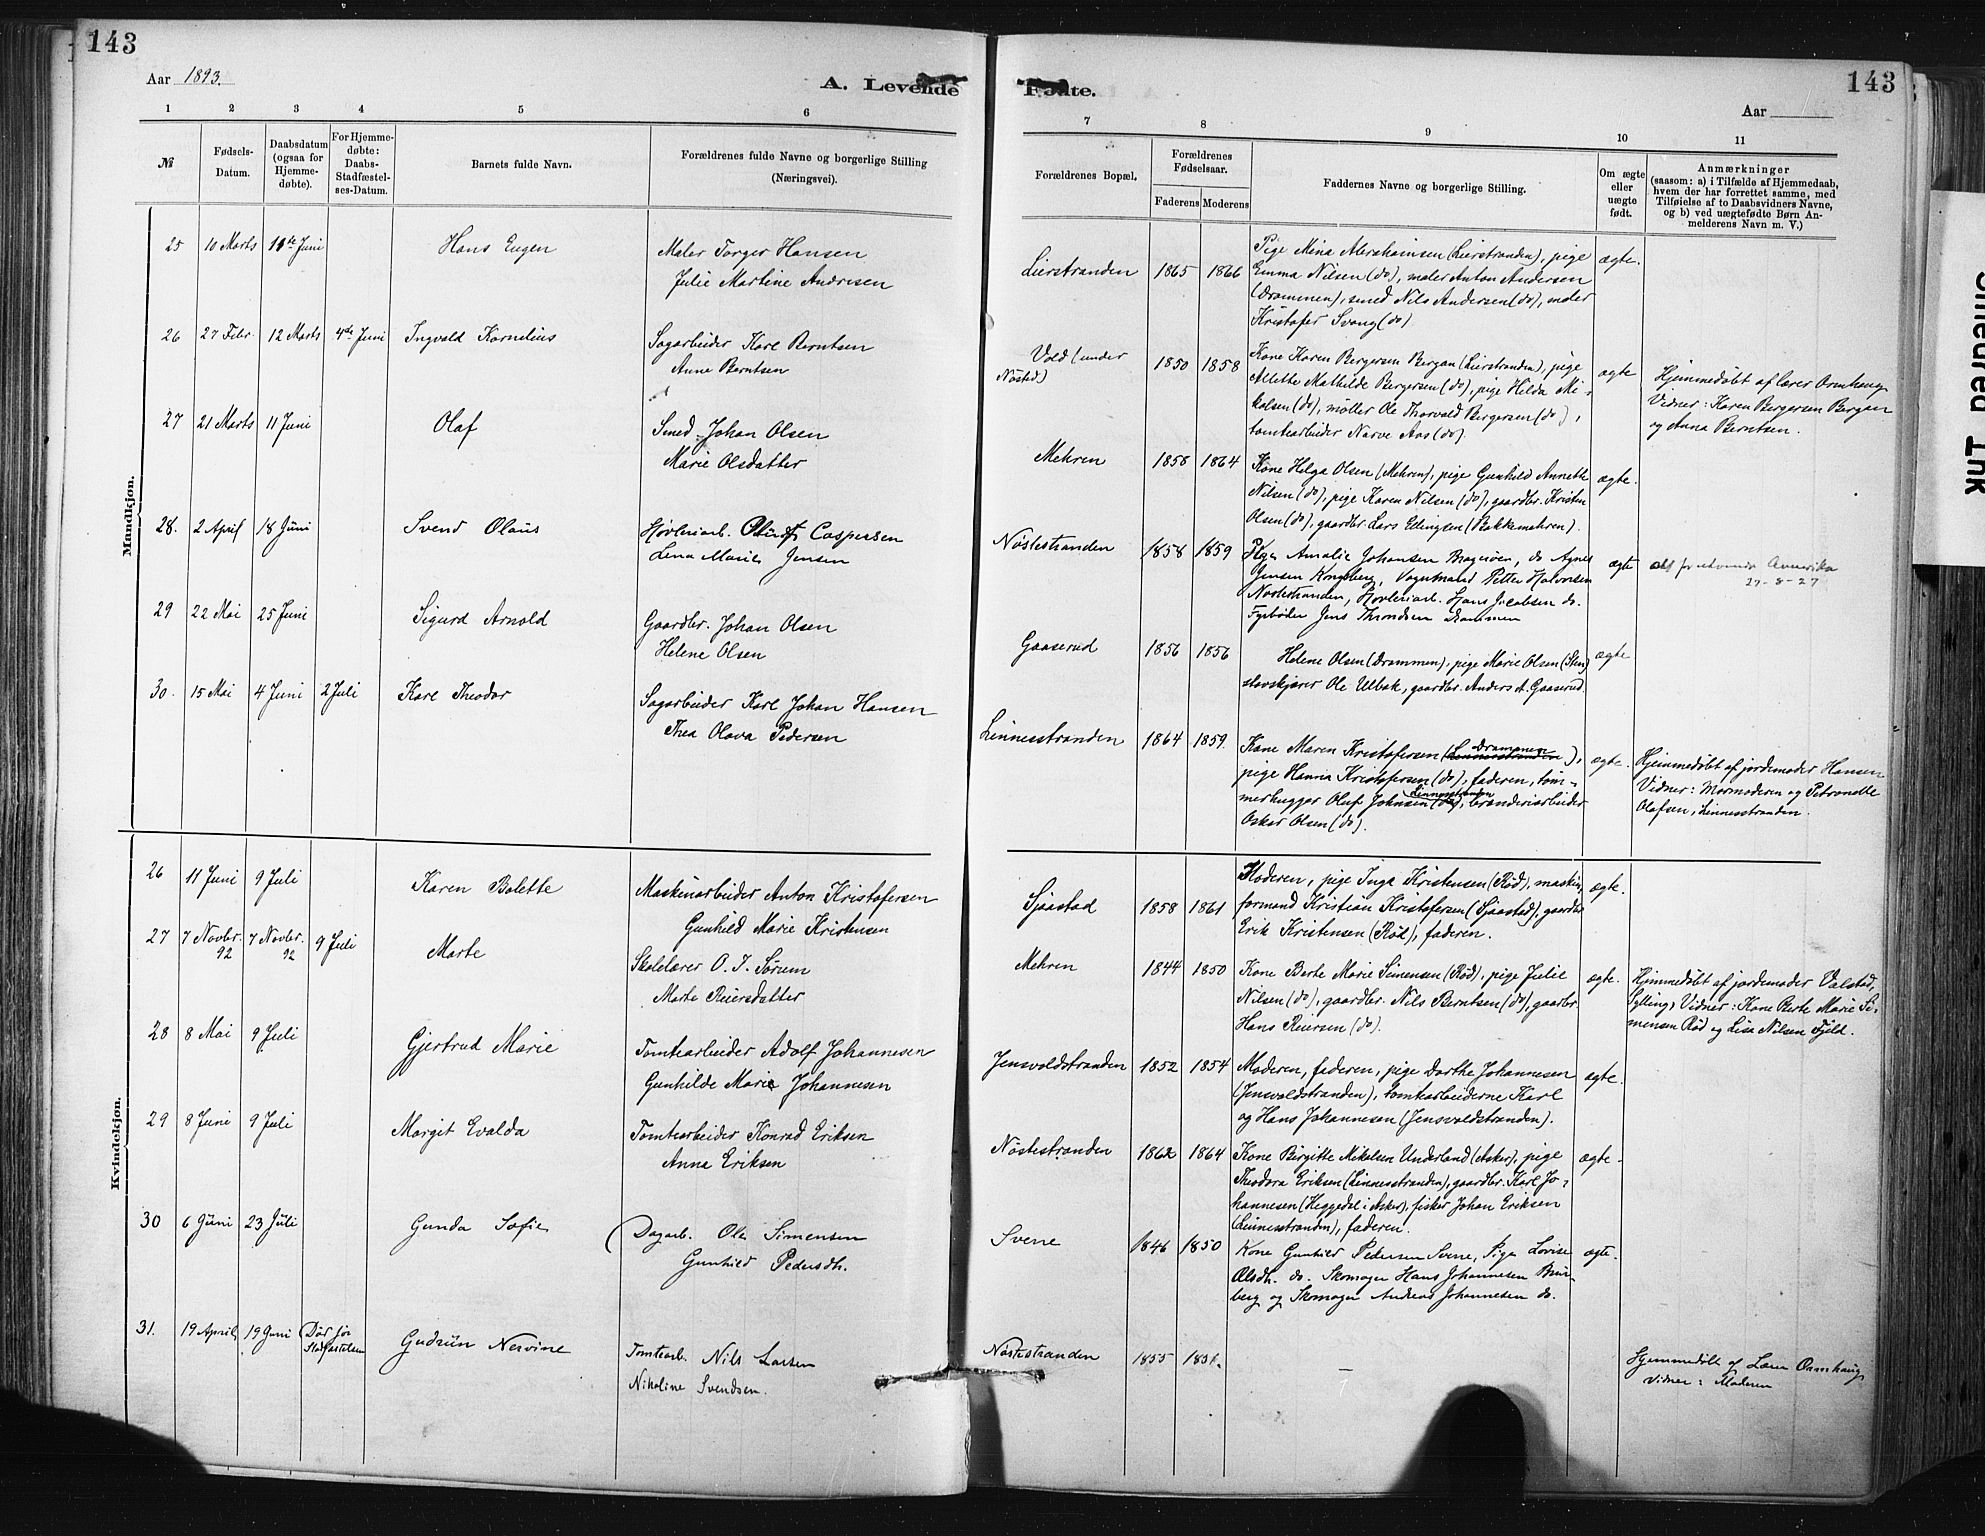 143
Aar 1893.
A. Levende
1 2 3 4 5 6
№
Fødsels-Datum.
Daabsdatum (ogsaa for Hjemmedøbte).
For Hjemmedøbte: Daabs-Stadfæstelses-Datum.
Barnets fulde Navn.
Forældrenes fulde Navne og borgerlige Stilling
(Næringsvei).
Mandkjøn.
25 10 Marts 11te Juni Hans Eugen Maler Torger Hansen
Julie Martine Andresen
26 27 Febr. 12 Marts 4de Juni Ingvald Kornelius Sagarbeider Karl Berntsen
Anne Berntsen
27 21 Marts 11 Juni Olaf Smed Johan Olsen
Marie Olsdatter
28. 2 April 18 Juni Svend Olaus Høvleriarb. Caspersen
Lina Marie Jensen
29 22 Mai 25 Juni Sigurd Arnold Gaardbr. Johan Olsen
Helene Olsen
30. 15 Mai 4 Juni 2 Juli Karl Theodor Sagarbeider Karl Johan Hansen
Thea Olava Pedersen
Kvindekjøn.
26 11 Juni 9 Juli Karen Bolette Maskinarbeider Anton Kristofersen
Gunhild Marie Kristensen
27 7 Novbr. 92 7 Novbr. 92 9 Juli Marte Skolelærer O. J. Sørum
Marte Reiersdatter
28 8 Mai 9 Juli Gjertrud Marie Tomtearbeider Adolf Johannesen
Gunhilde Marie Johannesen
29 8 Juni 9 Juli Margit Evalda Tomtearbeider Konrad Eriksen
Anna Eriksen
30 6 Juni 23 Juli Gunda Sofie Dagarb. Ole Simensen
Gunhild Pedersdh.
31. 19 April 19 Juni Død før Stadfæstelsen Gudrun Nervine Tomtearb. Nils Larsen
Nikoline Svendsen.
143
Fødte.
Aar
7 8 9 10 11
Forældrenes Bopæl.
Forældrenes Fødselsaar.
Faderens Moderens
Faddernes Navne og borgerlige Stilling.
Om ægte eller uægte født.
Anmærkninger
(saasom: a) i Tilfælde af Hjemmedaab,
hvem der har forrettet samme, med
Tilføielse af to Daabsvidners Navne,
og b) ved uægtefødte Børn Anmelderens Navn m. V.)
Lierstranden 1865 1866 Pige Mina Abrahamsen (Lierstranden), pige ægte.
Emma Nilsen (do), maler Anton Andersen
(Drammen), smed Nils Andersen (do), maler
Kristofer Svang (do)
Vold (under Nøsted) 1850 1858 Kone Karen Bergersen Bergan (Lierstranden), pige ægte
Allette Mathilde Bergersen (do), pige Hilda Mi-
kelsen (do), møller Ole Thorvald Bergersen (do),
tomtearbeider Narve Aas (do).
Hjemmedøbt af lærer Ormhaug
Vidner: Karen Bergersen Bergan
og Anna Berntsen.
Mehren 1858 1864 Kone Helga Olsen (Mehren), pige Gunhild Annette ægte.
Nilsen (do), pige Karen Nilsen (do), gaardbr. Kristen
Olsen (do), gaardbr. Lars Ellingsen (Bakkemehren).
Nøstestranden 1858 1859 Pige Amalie Johansen Bragerøen, do Agnes ægte
Jensen Kongsberg, Vognmand Petter Halvorsen
Nøstestranden, Høvleriarb. Hans Jacobsen do.
Fyrbøder Jens Throndsen Drammen
Amerika
27-8-27
Gaaserud 1856 1856 Helene Olsen (Drammen), pige Marie Olsen (Sten) ægte
stavskjærer Ole Ulbak, gaardbr. Anders A. Gaaserud.
Linnesstranden 1864 1859. Kone Maren Kristofersen (Linnesstranden Drammen), ægte.
pige Hanna Kristofersen (do), faderen, tøm-
merhugger Oluf Johnsen (do Linnesstranden), brænderiarbeider
Oskar Olsen (do).
Hjemmedøbt af jordemoder Hansen
Vidner: Mormoderen og Petronelle
Olafsen, Linnesstranden.
Sjaastad 1858 1861 Moderen, pige Inga Kristensen (Rød), maskin ægte.
formand Kristian Kristofersen (Sjaastad), gaardbr.
Erik Kristensen (Rød), faderen.
Mehren 1844 1850 Kone Berte Marie Simensen (Rød), pige Julie ægte.
Nilsen (do), gaardbr. Nils Berntsen (do), gaarbr.
Hans Reiersen (do).
Hjemmedøbt af jordemoder Valstad,
Sylling, Vidner: Kone Berte Marie Si-
mensen Rød og Lisa Nilsen Fjeld.
Jensvoldstranden 1852 1854 Moderen, faderen, pige Dorthe Johannesen ægte.
(Jensvoldstranden), tomtearbeiderne Karl
og Hans Johannesen (Jensvoldstranden).
Nøstestranden 1862 1864 Kone Birgitte Mikelsen Underland (Asker), pige ægte.
Theodora Eriksen (Linnesstranden), gaardbr. Karl Jo-
hannesen (Heggedal i Asker), fisker Johan Eriksen
(Linnesstranden), faderen.
Svene 1846 1850 Kone Gunhild Pedersen Svene, Pige Lovise ægte.
Olsdh. do. Skomager Hans Johannesen Bur-
berg og Skomager Andreas Johannesen do.
Nøstestranden 1855 —
Hjemmedøbt af Lærer Ormhaug
Vidner: Moderen